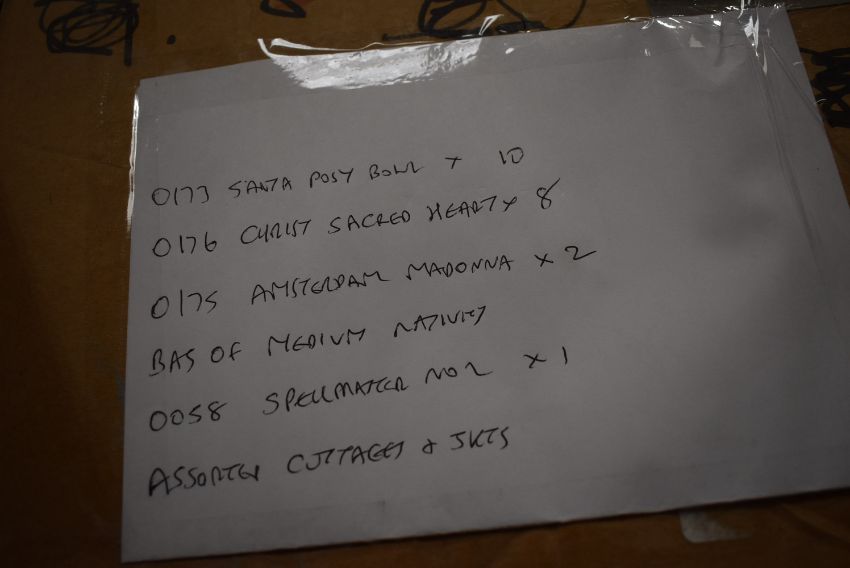 0173 SANTA POSY BOWL x 10
0176 CHRIST SACRED HEART x 8
0175 AMSTERDAM MADONNA x 2
BAS OF MEDIUM NATIVITY
0058 SPELLMATER NO 2 x 1
ASSORTED COTTAGES &